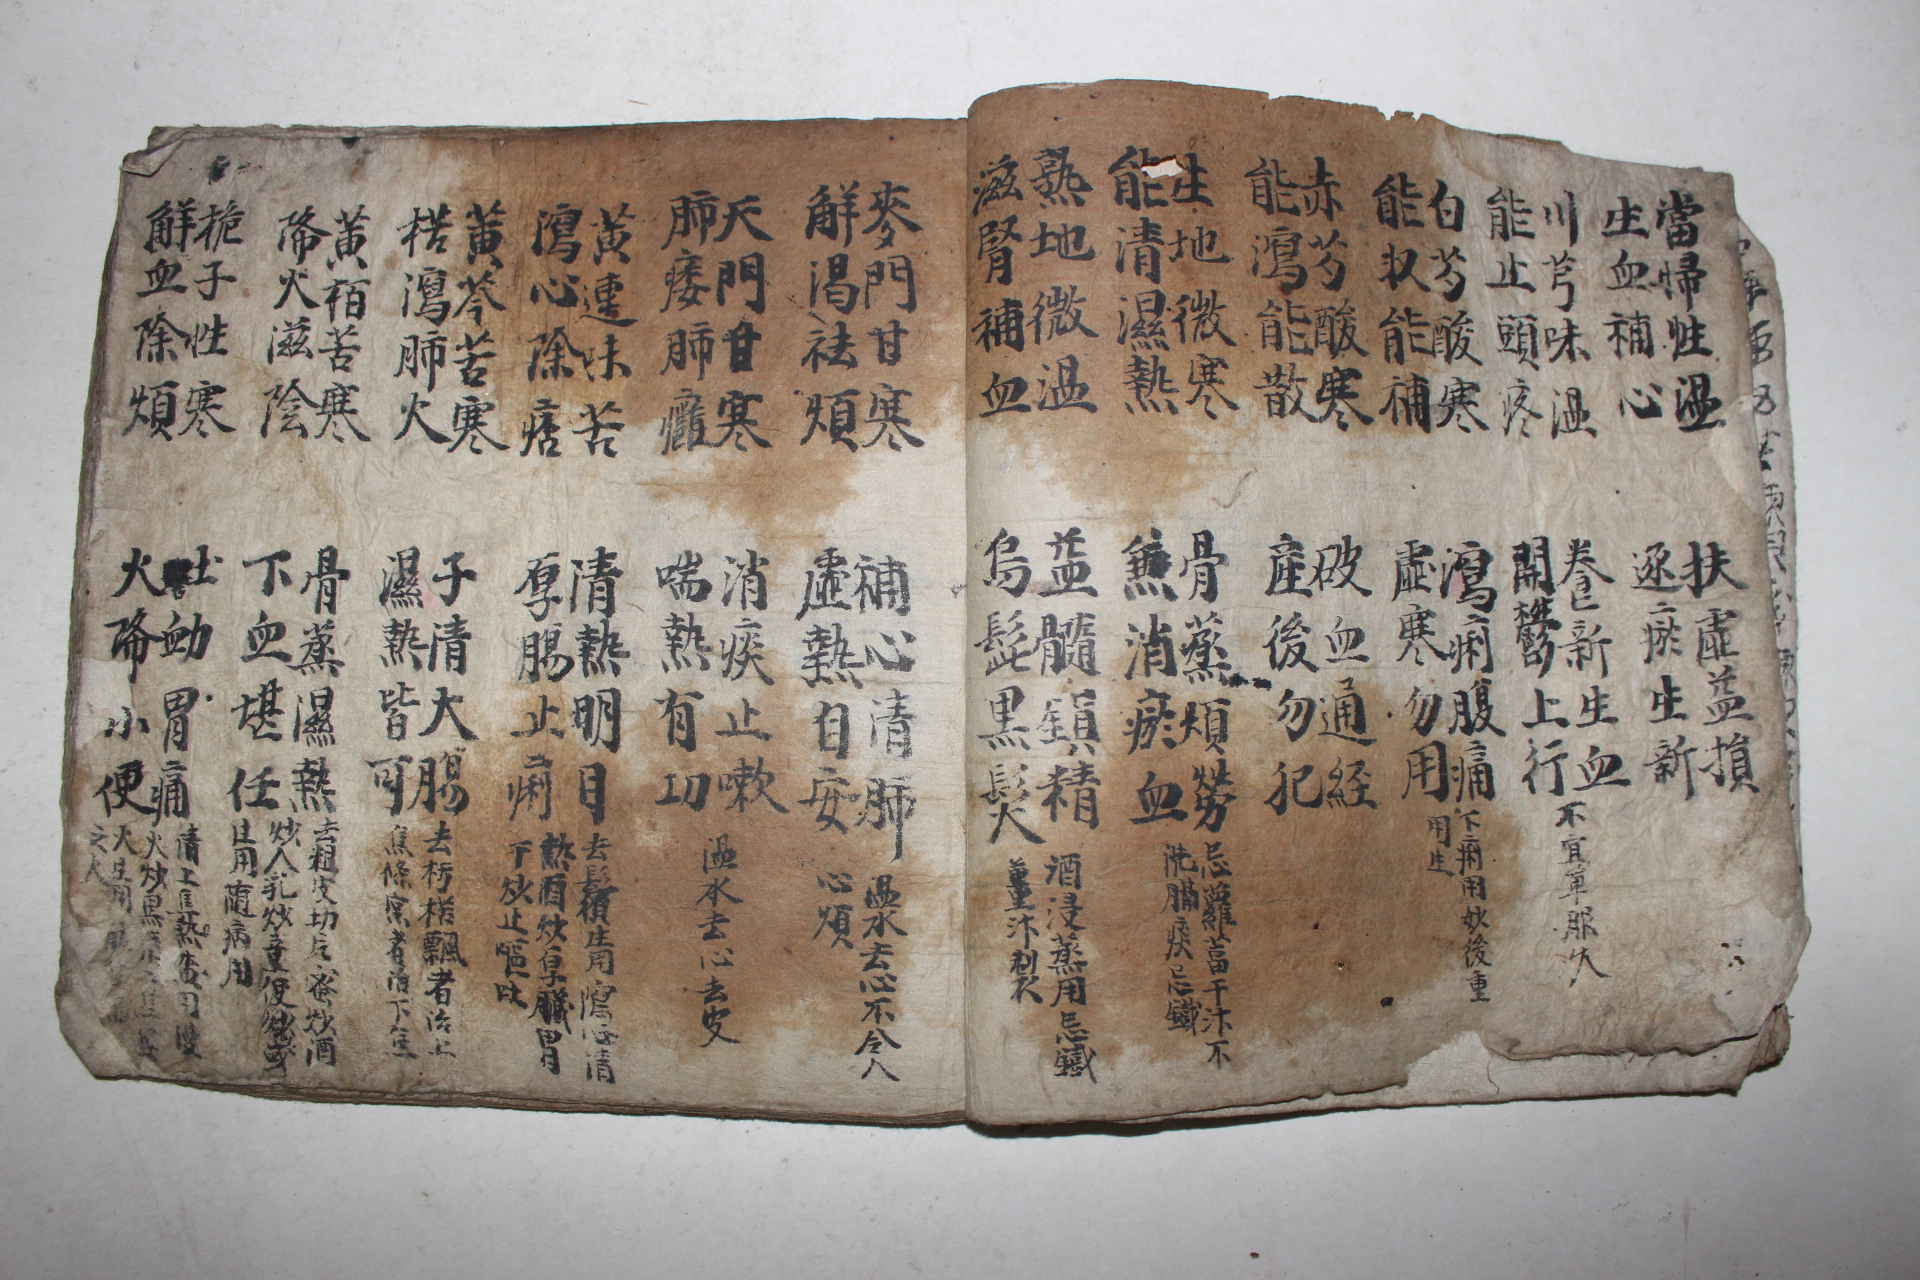 當歸性温
生血補心
扶虛益損
逐瘀生新
川芎味温
能止頭疼
養新生血
開鬱上行
不宜單服久
白芍酸寒
能収能補
瀉痢腹痛
虛寒勿用
下痢用炒後重
用生
赤芍酸寒
能瀉能散
破血通経
産後勿犯
生地微寒
能清濕熱
骨蒸煩勞
兼消瘀血
忌蘿葍干汁不
洗膈痰忌鐵
熟地微温
滋腎補血
益髓鎮精
烏髭黑髮
酒浸蒸用忌鐵
薑汁制衣
麥門甘寒
解渴祛煩
補心清肺
虛熱自安
温水去心不令人
心煩
天門甘寒
肺痿肺癰
消痰止嗽
喘熱有功
温水去心去皮
黃連味苦
瀉心除痞
清熱明目
厚腸止痢
去鬚生用瀉心清
熱酒炒厚臟胃
干炒止嘔吐
黃芩苦寒
枯瀉肺火
子清大腸
濕熱皆可
去朽枯飄者治上
焦條實者治下焦
黃栢苦寒
降火滋陰
骨蒸濕熱
下血堪任
去粗皮切片蜜炒酒
炒人乳炒童便炒或
生用随病用
梔子性寒
解血除煩
吐衄胃痛
火降小便